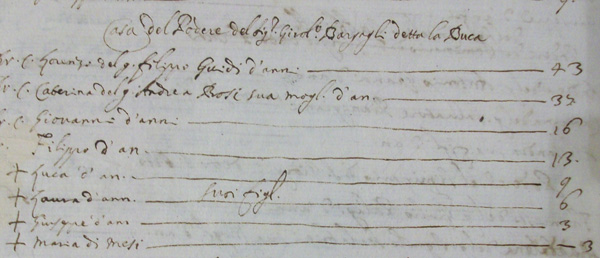 Casa del Podere del sig.r Girol.o Bargagli detta la Buca
C. Lorenzo del q. Filippo Guidi d'anni 43
C. Caterina del q. Andrea Rosi sua mogl. d'an 37
C. Giovanni d'anni 16
Filippo d'an. 13.
+ Luca d'an. 9
+ Laura d'ann. suoi figl. 6
+ Giusepe d'an 3
+ Maria di Mesi 3